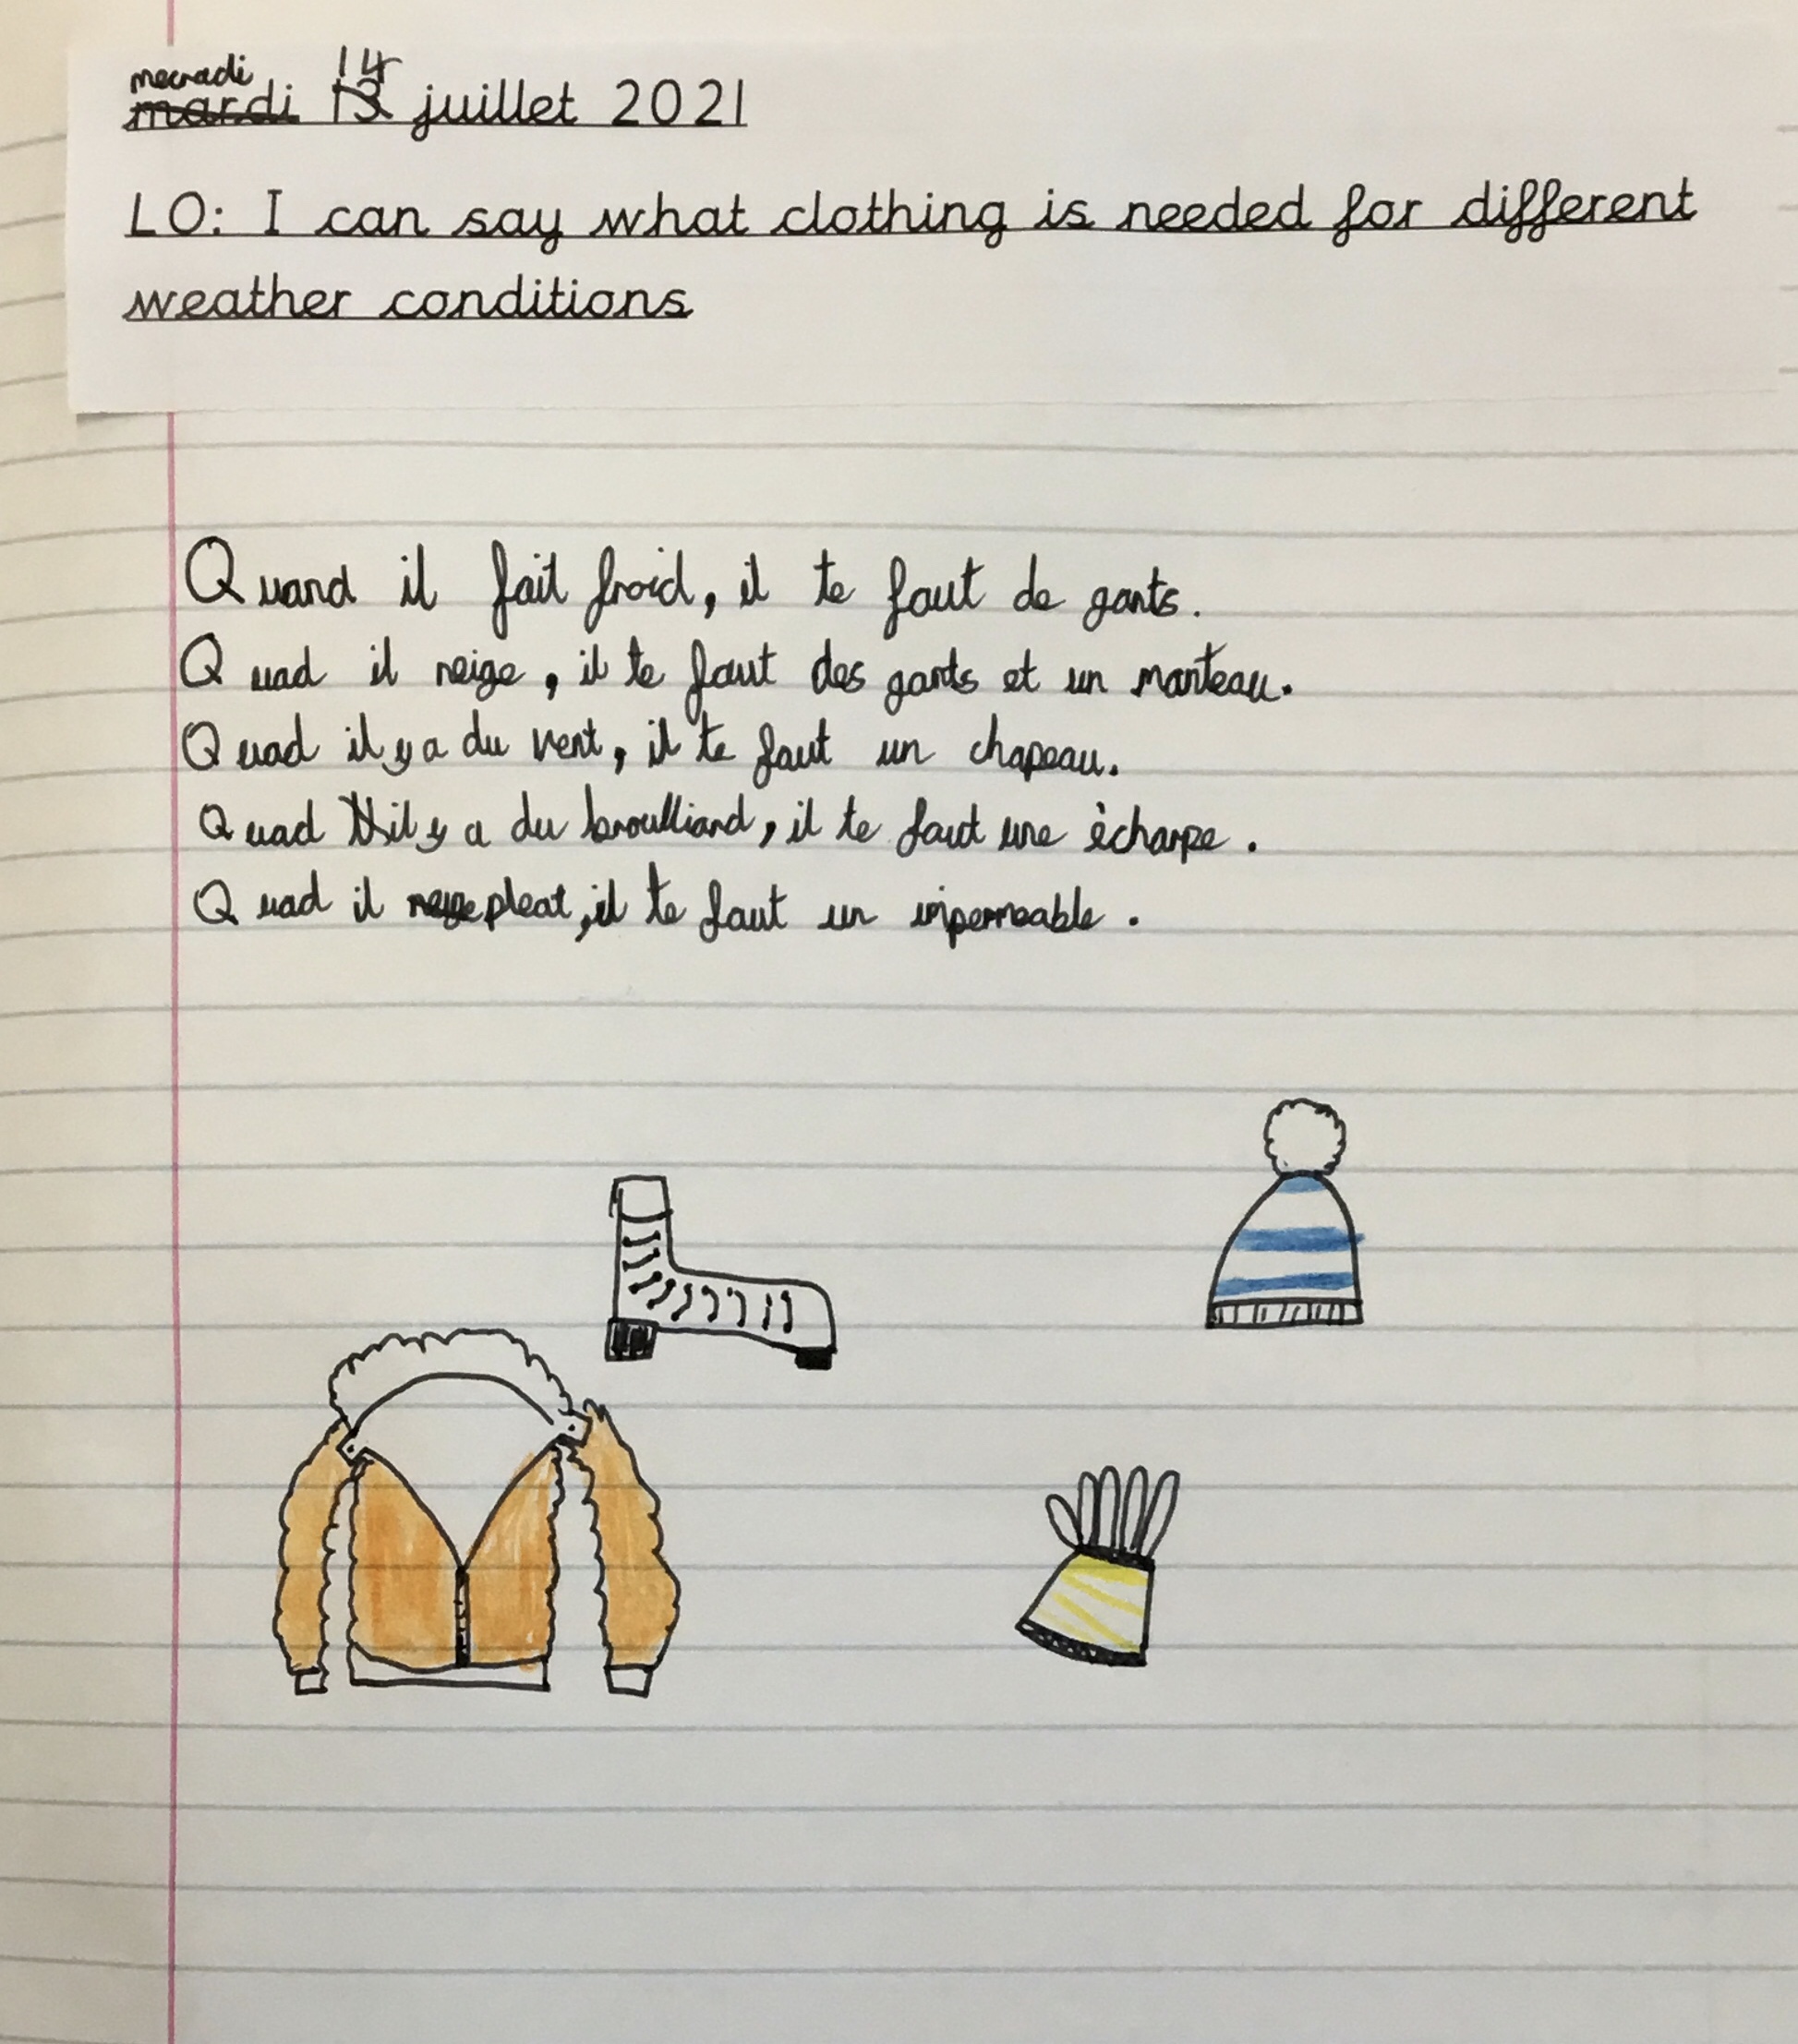 mecradi 14
mardi 13 juillet 2021
LO: I can say what clothing is needed for different
weather conditions
Quand il fait froid, il te faut de gants.
Quad il neige, il te faut des gants et un manteau.
Quad il y a du vent, il te faut un chapeau.
Quad il y a du broulliard, il te faut une ècharpe.
Quad il neige pleat, il te faut un impermeable.